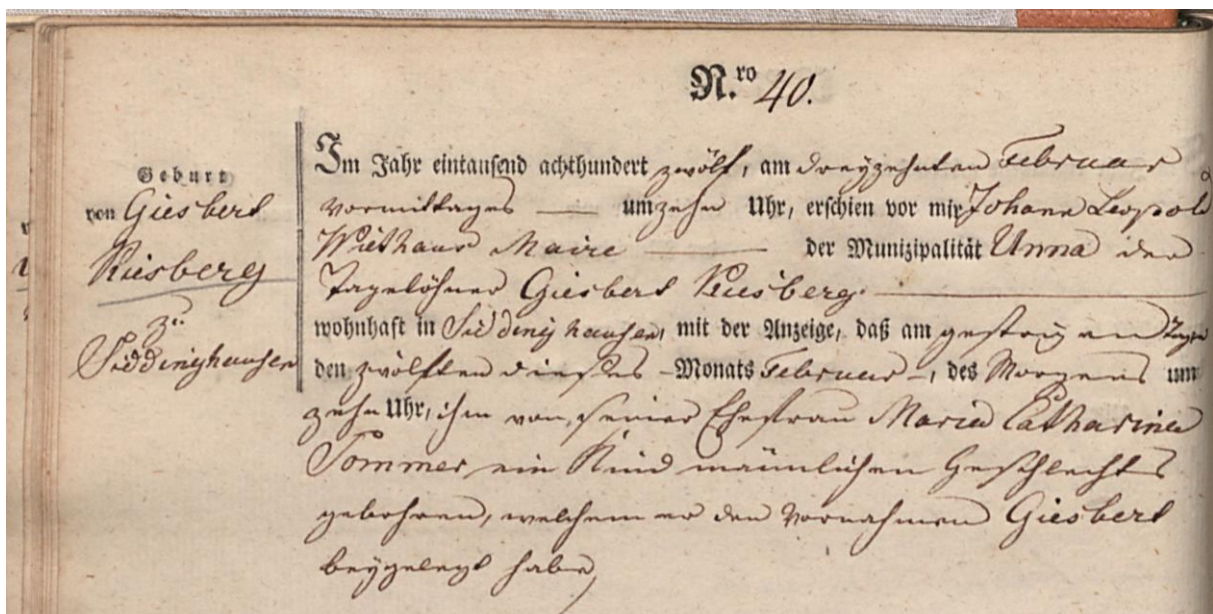 N.ro 40.
Geburt
von Giesbert
Kiesberg
zu
Siddinghausen
Im Jahr eintausend achthundert zwölf, am dreyzehnten Februar
vormittages — um zehn Uhr, erschien vor mir Johann Leopold
Wiethaus Maire — der Munizipalität Unna der
Tagelöhner Giesbert Kiesberg.
wohnhaft in Siddinghausen, mit der Anzeige, daß am gestrigen Tage
den zwölften dieses - Monats Februar -, des Morgens um
zehn Uhr, ihm von seiner Ehefrau Maria Catharina
Sommer ein Kind männlichen Geschlechts
gebohren, welchem er den Vornahmen Giesbert
beygelegt habe,